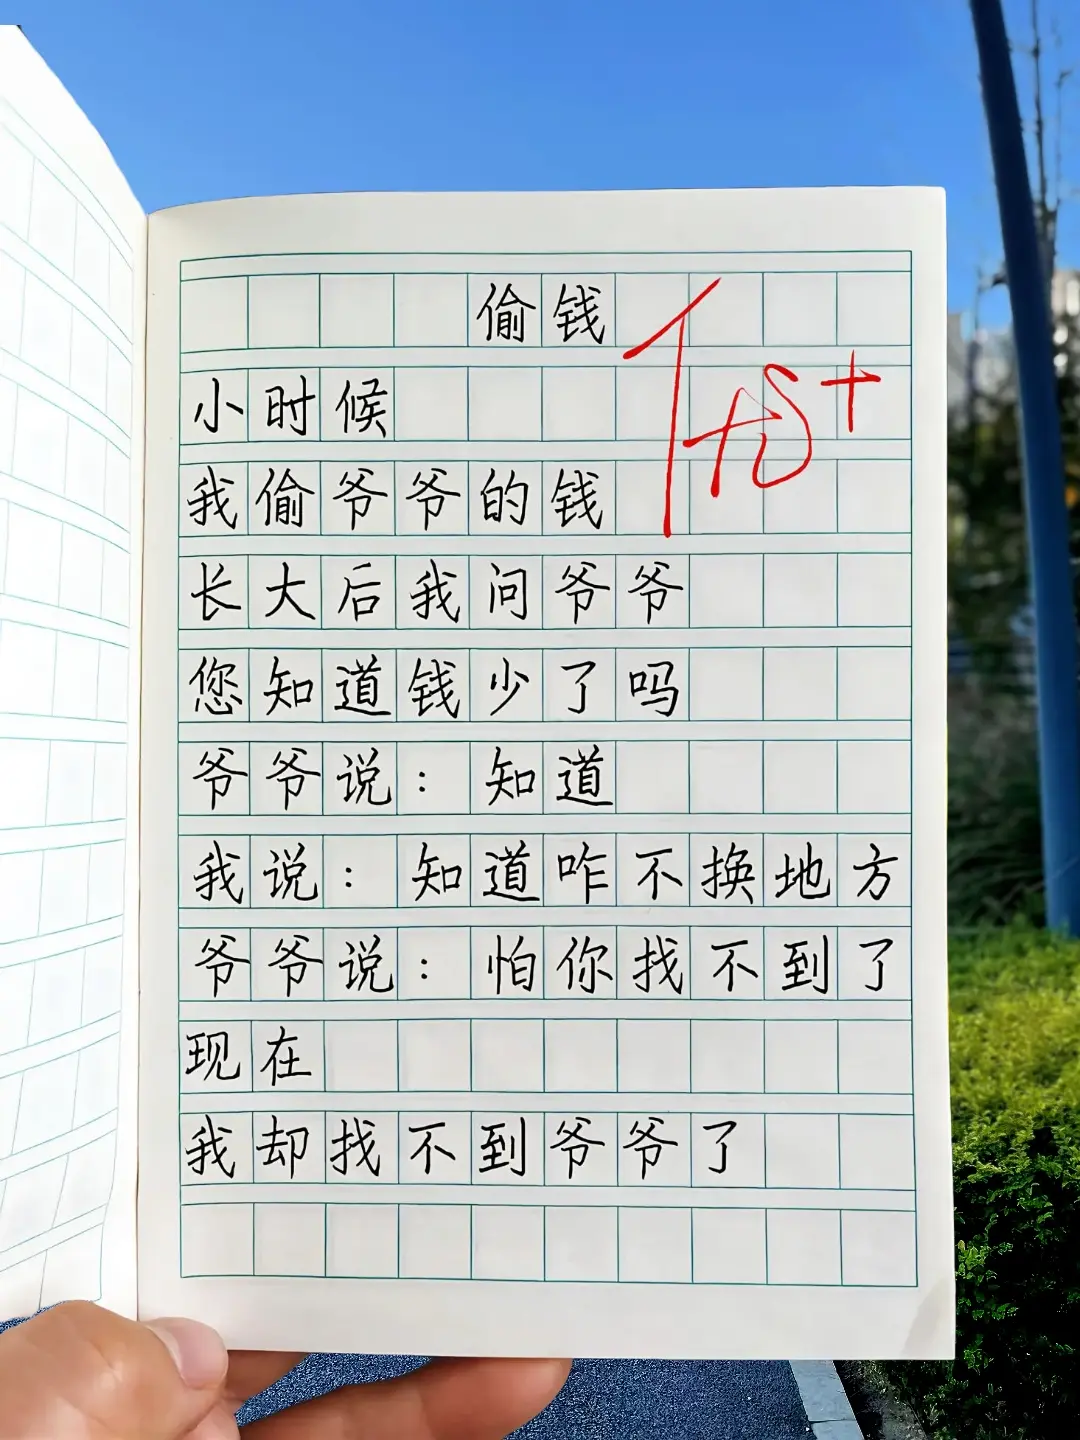 偷钱
小时候
我偷爷爷的钱
长大后我问爷爷
您知道钱少了吗
爷爷说：知道
我说：知道咋不换地方
爷爷说：怕你找不到了
现在
我却找不到爷爷了